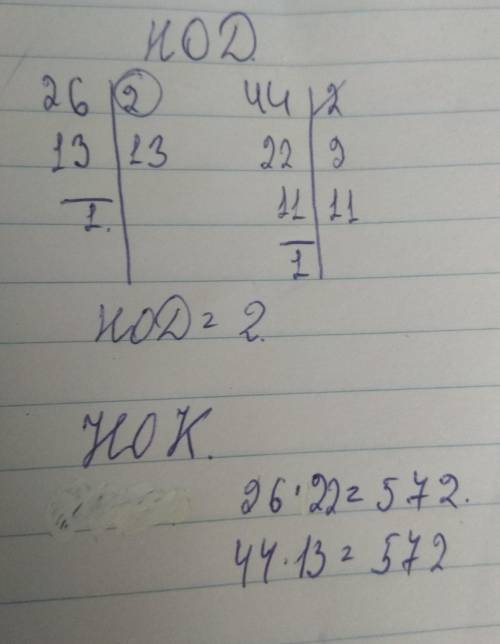 НОД.
26 | 2 44 | 2
13 | 13 22 | 2
1. 11 | 11
1
НОД = 2.
НОК.
26 · 22 = 572.
44 · 13 = 572